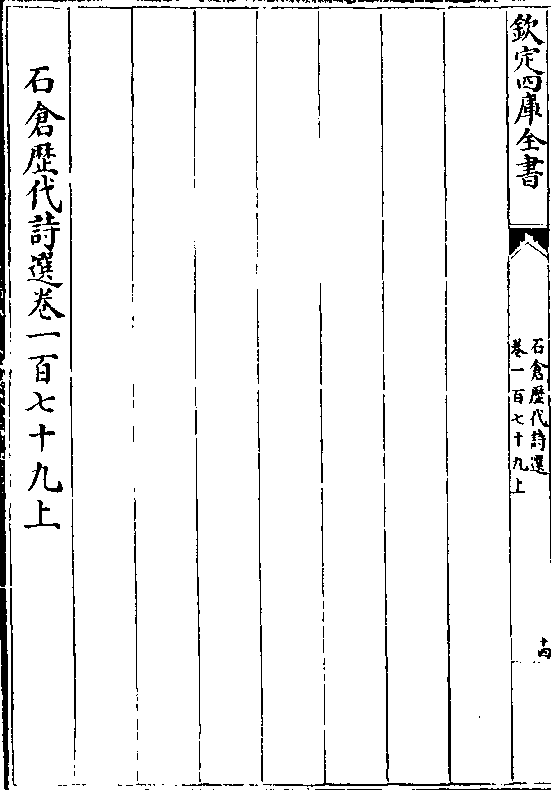 欽定四庫全書
石倉歷代詩選
卷一百七十九上
十四
石倉歷代詩選卷一百七十九上